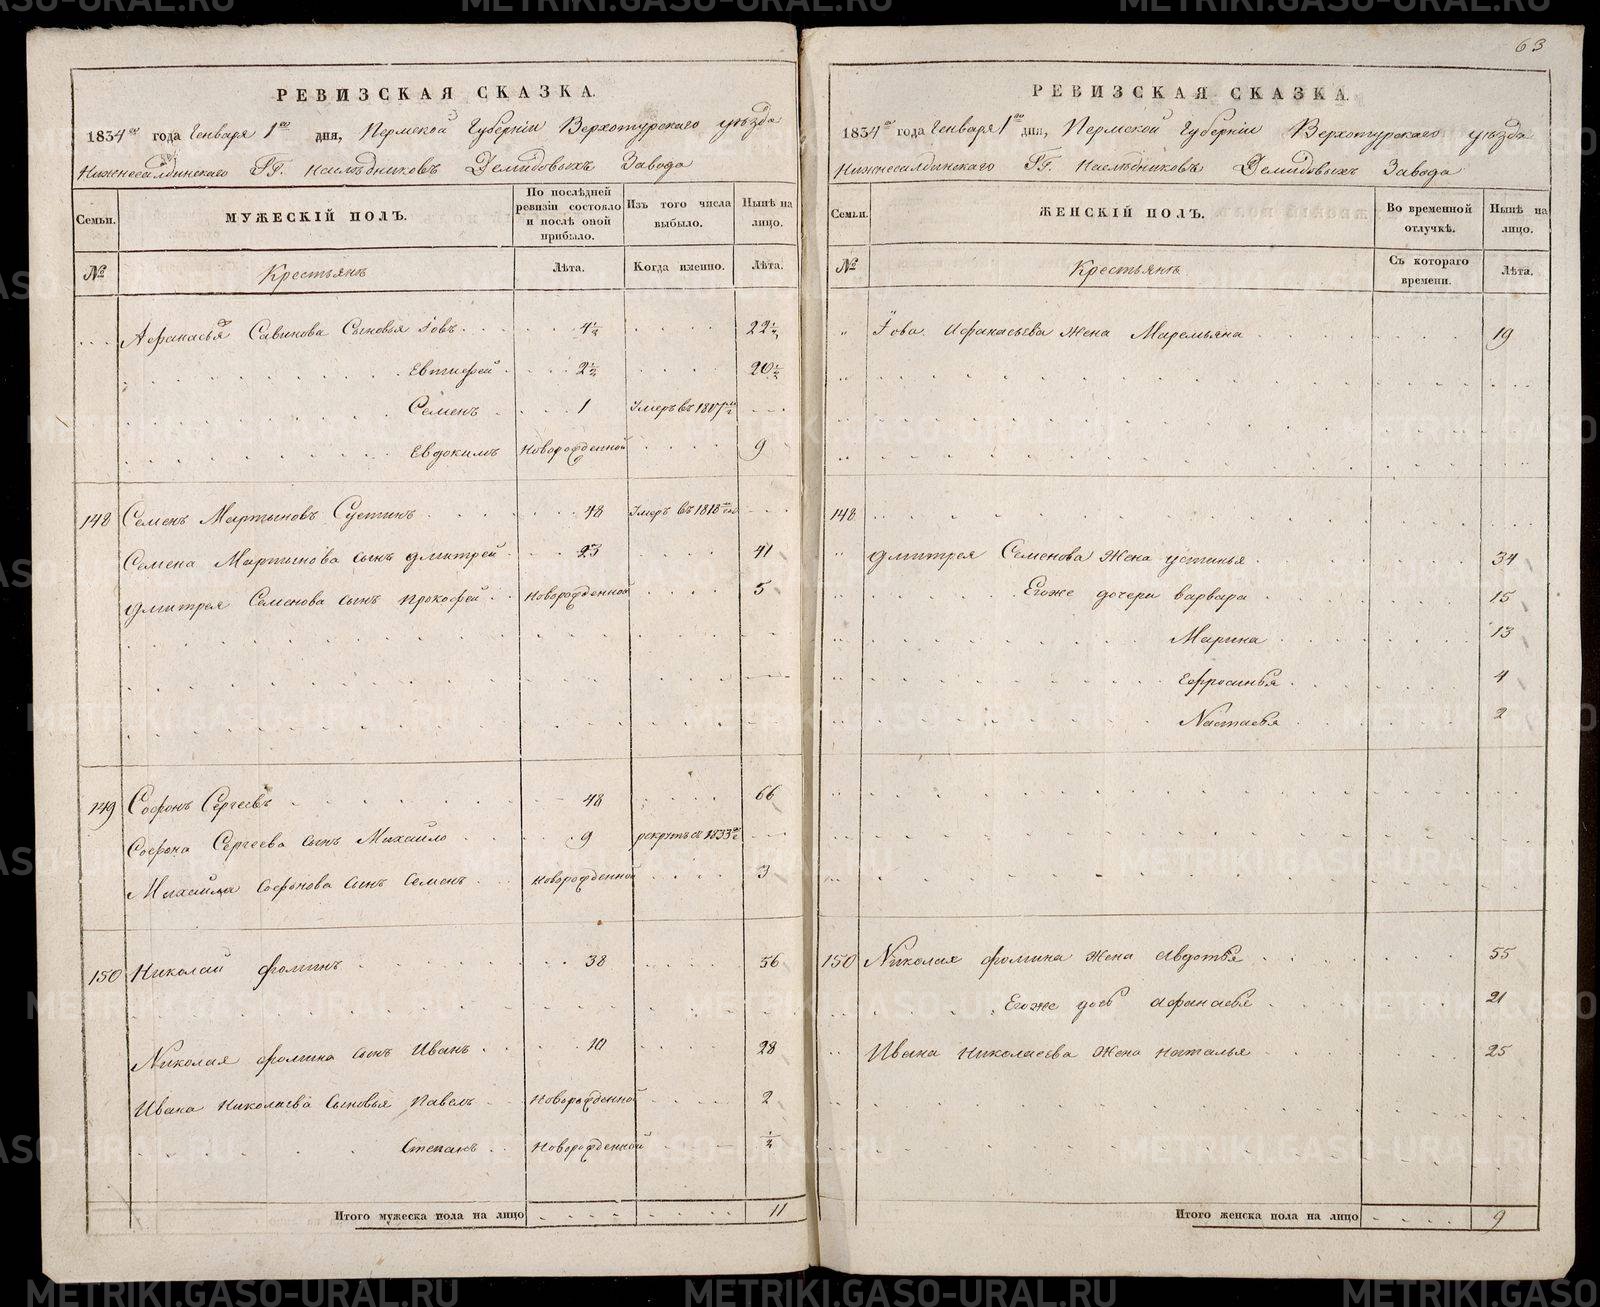 63
РЕВИЗСКАЯ СКАЗКА.
1834го года Генваря 1го дня, Пермской Губерніи Верхотурскаго уѣзда
Нижнесалдинскаго ГГ. Наслѣдниковъ Демидовыхъ Завода
Семьи.
МУЖЕСКІЙ ПОЛЪ.
По послѣдней ревизіи состояло и послѣ оной прибыло.
Изъ того числа выбыло.
Нынѣ на лицо.
№
Крестьянъ
Лѣта.
Когда именно.
Лѣта.
Афанасья Савинова Сыновья Іовъ 4½ 22½
Евтифей 2½ 20½
Семенъ 1 Умеръ въ 1817мъ
Евдокимъ Новорожденной 9
148 Семенъ Мартыновъ Сустинъ 48 Умеръ въ 1818
Семена Мартынова сынъ дмитрей 23 41
дмитрея Семенова сынъ Прокофей Новорожденной 5
149 Софонъ Сергеевъ 48 66
Софона Сергеева сынъ Михайло 9 рекрутъ въ 1833
Михайла Софонова сынъ Семенъ Новорожденной 3
150 Николай фоминъ 38 56
Николая фомина сынъ Иванъ 10 28
Ивана Николаева Сыновья Павелъ Новорожденной 2
Степанъ Новорожденной ½
Итого мужеска пола на лицо 11
РЕВИЗСКАЯ СКАЗКА.
1834го года Генваря 1го дня, Пермской Губерніи Верхотурскаго уѣзда
Нижнесалдинскаго ГГ. Наслѣдниковъ Демидовыхъ Завода
Семьи.
ЖЕНСКІЙ ПОЛЪ.
Во временной отлучкѣ.
Нынѣ на лицо.
№
Крестьянъ
Съ котораго времени.
Лѣта.
Іова Афанасьева жена Маремьяна 19
148
дмитрея Семенова жена устинья 34
Егоже дочери варвара 15
Марина 13
Ефросинья 4
Настасья 2
150 Николая фомина жена Авдотья 55
Егоже дочь Афанасья 21
Ивана Николаева жена Наталья 25
Итого женска пола на лицо 9
METRIKI.GASO-URAL.RU